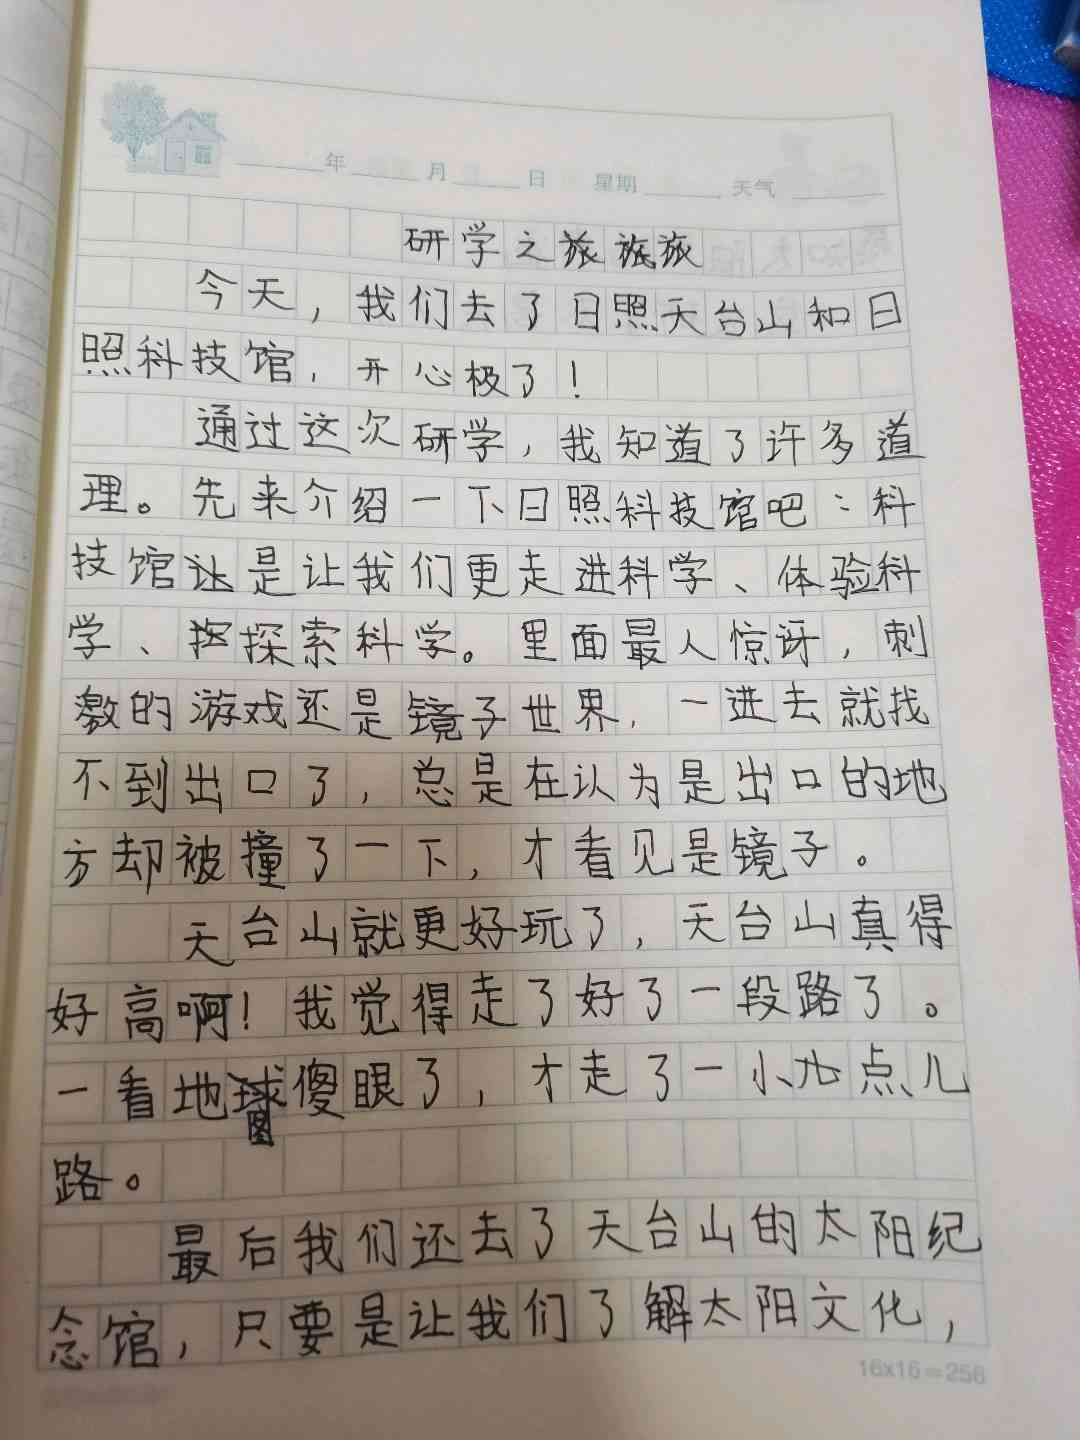 年 月 日 星期 天气
研学之旅旅旅
今天，我们去了日照天台山和日
照科技馆，开心极了！
通过这次研学，我知道了许多道
理。先来介绍一下日照科技馆吧：科
技馆让是让我们更走进科学、体验科
学、探索科学。里面最人惊讶，刺
激的游戏还是镜子世界，一进去就找
不到出口了，总是在认为是出口的地
方却被撞了一下，才看见是镜子。
天台山就更好玩了，天台山真得
好高啊！我觉得走了好了一段路了。
一看地图傻眼了，才走了一小点儿
路。
最后我们还去了天台山的太阳纪
念馆，只要是让我们了解太阳文化，
16x16=256